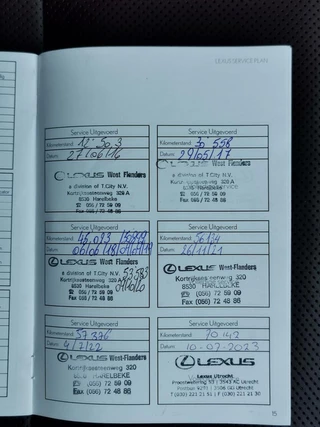 LEXUS SERVICE PLAN
Service Uitgevoerd
Kilometerstand: 12 503
Datum: 27/06/16
LEXUS West Flanders
a division of T.City N.V.
Kortrijksesteenweg 320 A
8530 Harelbeke
056 / 72 59 09
Fax 056 / 72 48 86
Service Uitgevoerd
Kilometerstand: 30 558
Datum: 29/05/17
LEXUS West Flanders
a division of T.City N.V.
8530 Harelbeke
056 / 72 59 09
Fax 056 / 72 48 86
Service Uitgevoerd
46 093
Datum: 06/06/18
LEXUS West Flanders
a division of T.City N.V.
Kortrijksesteenweg 320 A
8530 Harelbeke
056 / 72 59 09
Fax 056 / 72 48 86
Service Uitgevoerd
Kilometerstand:
Datum: 26/11/21
LEXUS West-Flanders
Kortrijksesteenweg 320
8530 HARELBEKE
(056) 72 59 09
Fax (056) 72 48 86
Service Uitgevoerd
Kilometerstand: 57 376
Datum: 4/7/22
LEXUS West-Flanders
Kortrijksesteenweg 320
8530 HARELBEKE
(056) 72 59 09
Fax (056) 72 48 86
Service Uitgevoerd
Kilometerstand: 70 142
Datum: 10-07-2023
LEXUS
Lexus Utrecht
15